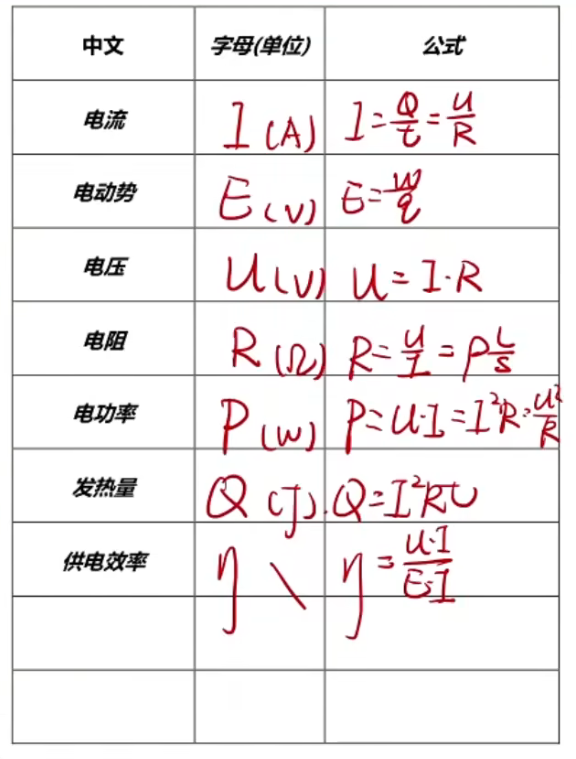 中文 字母(单位) 公式
电流 I (A) I=Q/t=U/R
电动势 E (V) E=W/q
电压 U (V) U=I·R
电阻 R (Ω) R=U/I=ρL/S
电功率 P (W) P=U·I=I²R=U²/R
发热量 Q (J). Q=I²Rt
供电效率 η \ η=U·I/E·I